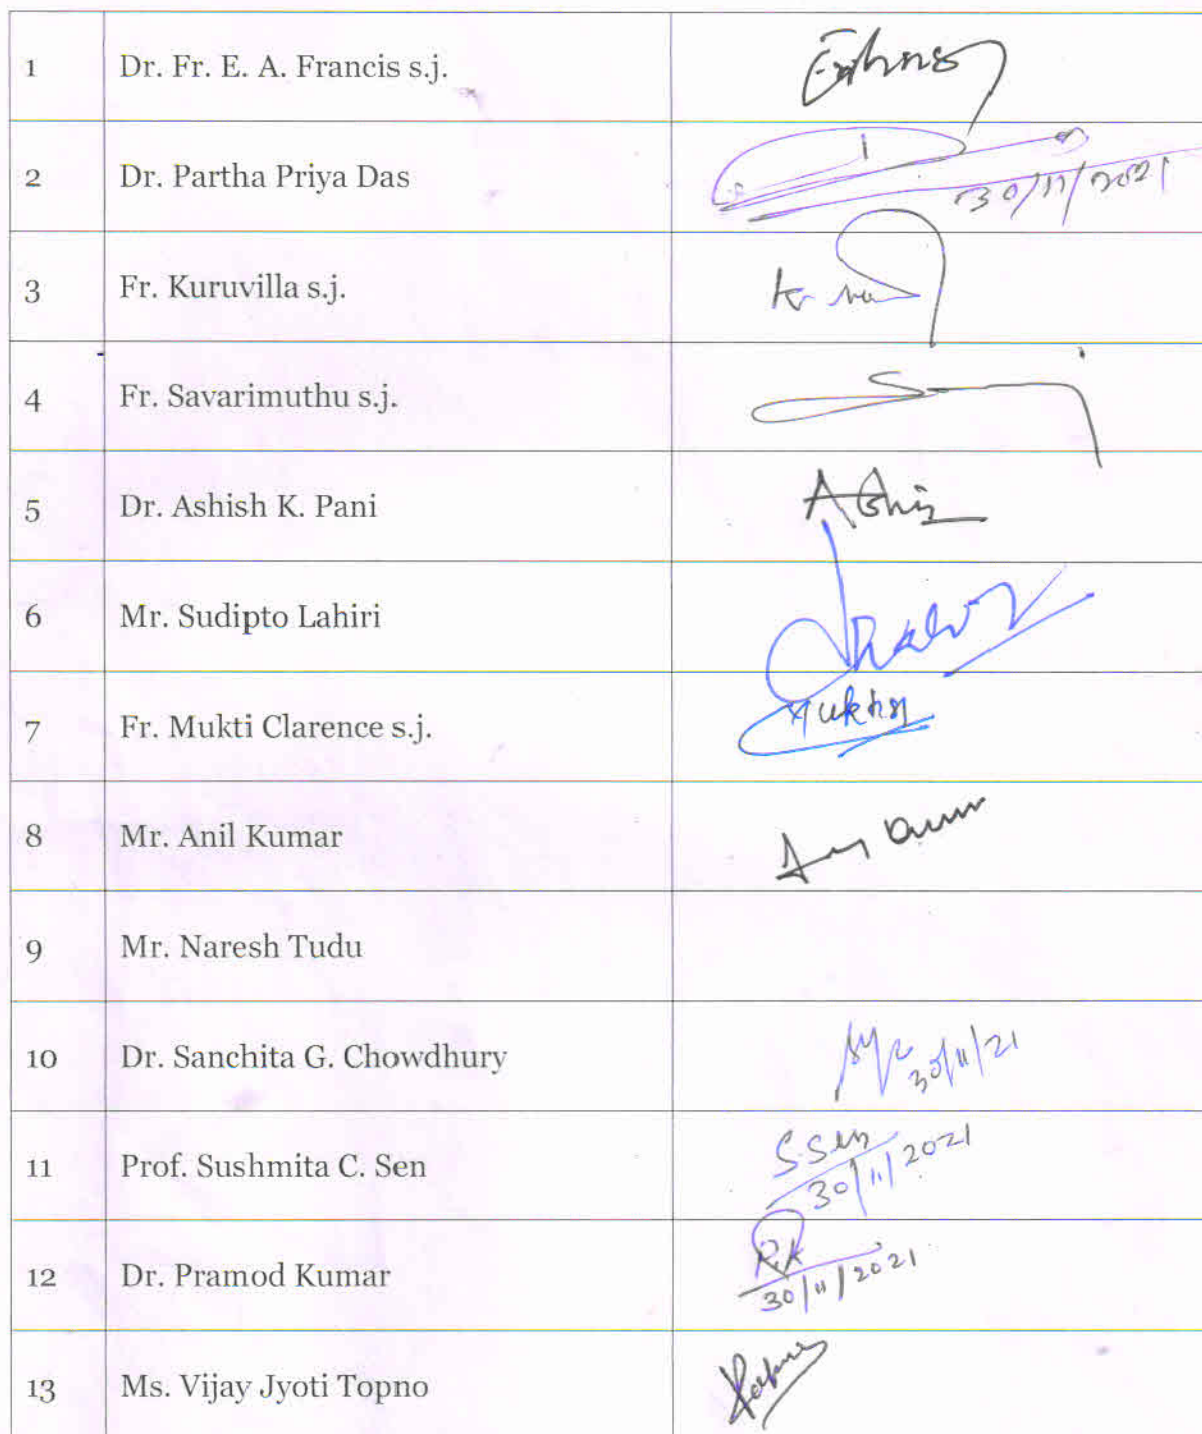 1 Dr. Fr. E. A. Francis s.j.
2 Dr. Partha Priya Das 30/11/2021
3 Fr. Kuruvilla s.j.
4 Fr. Savarimuthu s.j.
5 Dr. Ashish K. Pani
6 Mr. Sudipto Lahiri
7 Fr. Mukti Clarence s.j.
8 Mr. Anil Kumar
9 Mr. Naresh Tudu
10 Dr. Sanchita G. Chowdhury 30/11/21
11 Prof. Sushmita C. Sen S.Sen
30/11/2021
12 Dr. Pramod Kumar
30/11/2021
13 Ms. Vijay Jyoti Topno